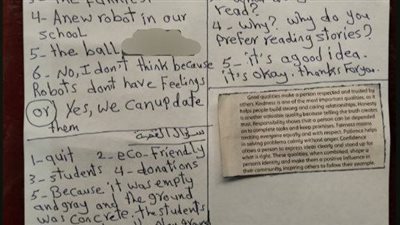 4. A new robot in our
school
5- the ball
6- No, I don't think because
Robots don't have Feelings
or Yes, we can update
them
1- quit 2- eco-friendly
3- students 4- donations
5- Because it was empty
and gray and the ground
was concrete. the students
read?
4- Why? Why do you
prefer reading stories?
5- it's a good idea.
it's okay. thanks for you.
Good qualities make a person respected and trusted by
others. Kindness is one of the most important qualities, as it
helps people build strong and caring relationships. Honesty
is another valuable quality because telling the truth creates
trust. Responsibility shows that a person can be depended
on to complete tasks and keep promises. Fairness means
treating everyone equally and with respect. Patience helps
in solving problems calmly without anger. Confidence
allows a person to express ideas clearly and stand up for
what is right. These qualities, when combined, shape a
person's identity and make them a positive influence in
their community, inspiring others to follow their example.